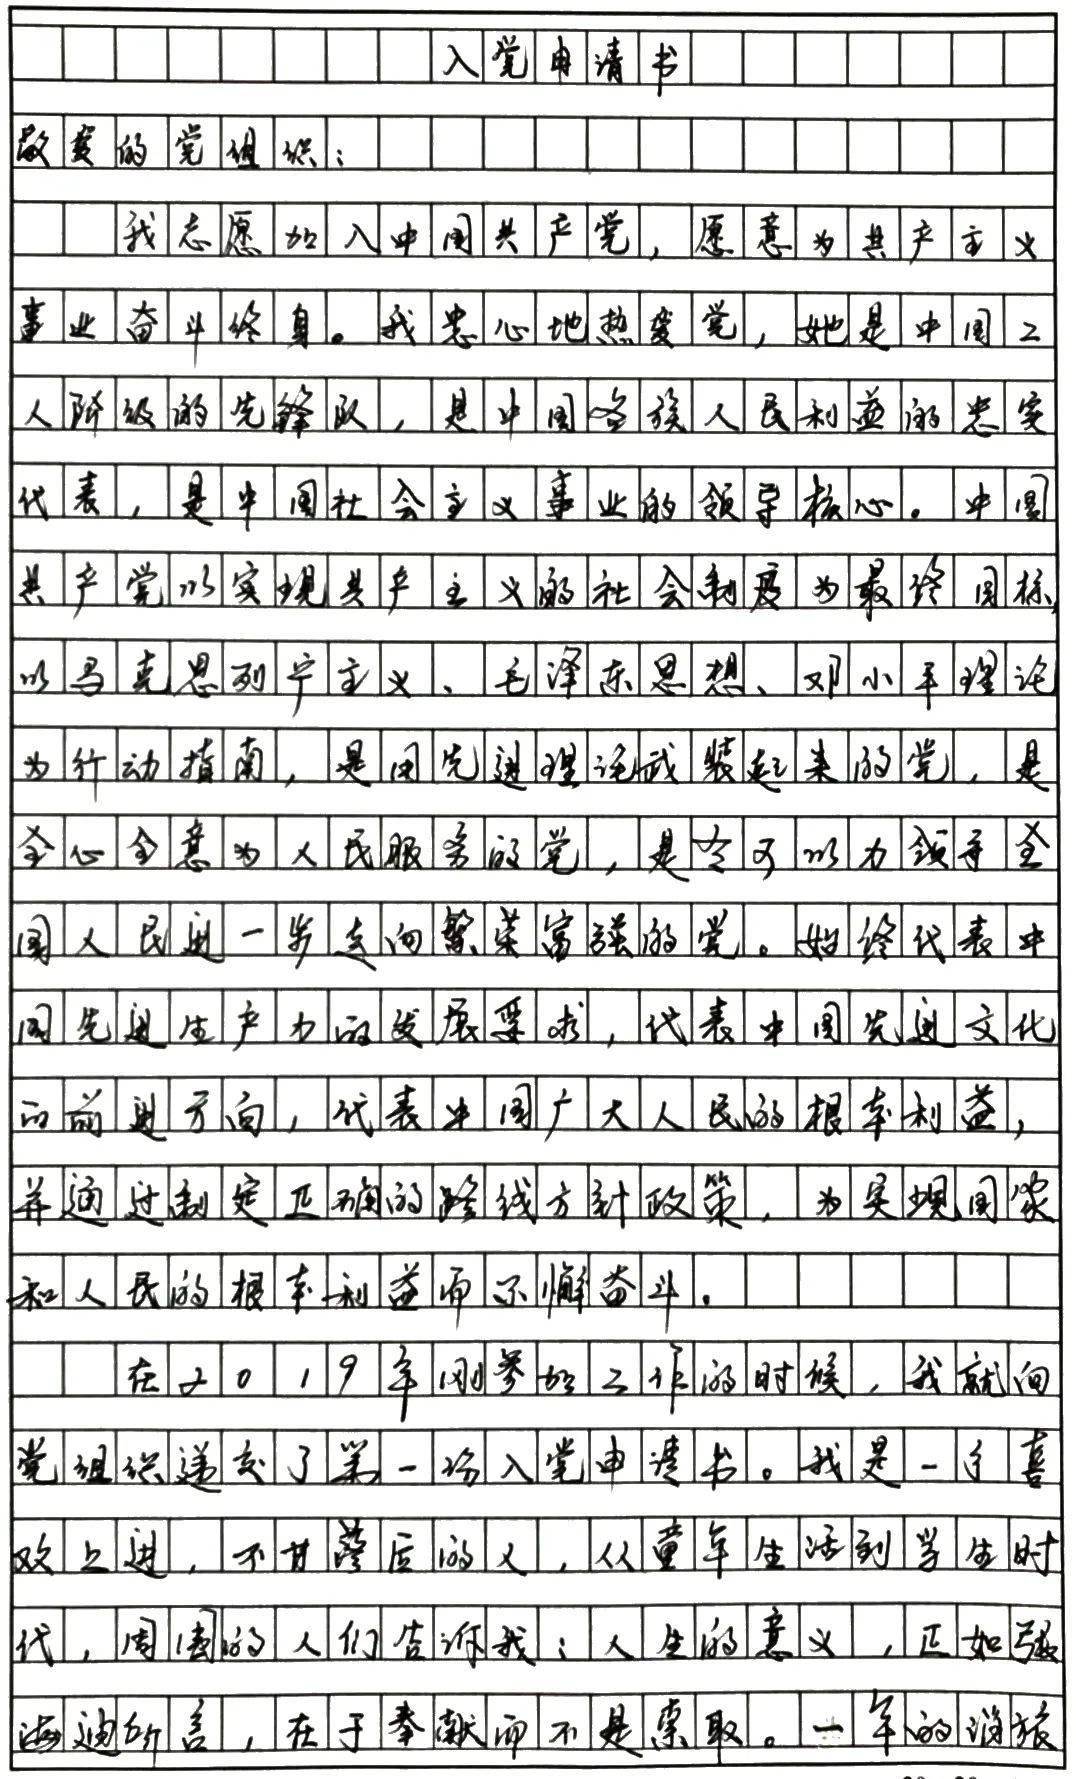 入党申请书
敬爱的党组织：
我志愿加入中国共产党，愿意为共产主义
事业奋斗终身。我忠心地热爱党，她是中国工
人阶级的先锋队，是中国各族人民利益的忠实
代表，是中国社会主义事业的领导核心。中国
共产党以实现共产主义的社会制度为最终目标，
以马克思列宁主义、毛泽东思想、邓小平理论
为行动指南，是用先进理论武装起来的党，是
全心全意为人民服务的党，是有可以力领导全
国人民进一步走向繁荣富强的党。始终代表中
国先进生产力的发展要求，代表中国先进文化
的前进方向，代表中国广大人民的根本利益，
并通过制定正确的路线方针政策，为实现国家
和人民的根本利益而不懈奋斗。
在2019年刚参加工作的时候，我就向
党组织递交了第一份入党申请书。我是一个喜
欢上进，不甘落后的人，从童年生活到学生时
代，周围的人们告诉我：人生的意义，正如张
海迪所言，在于奉献而不是索取。一年的消旅